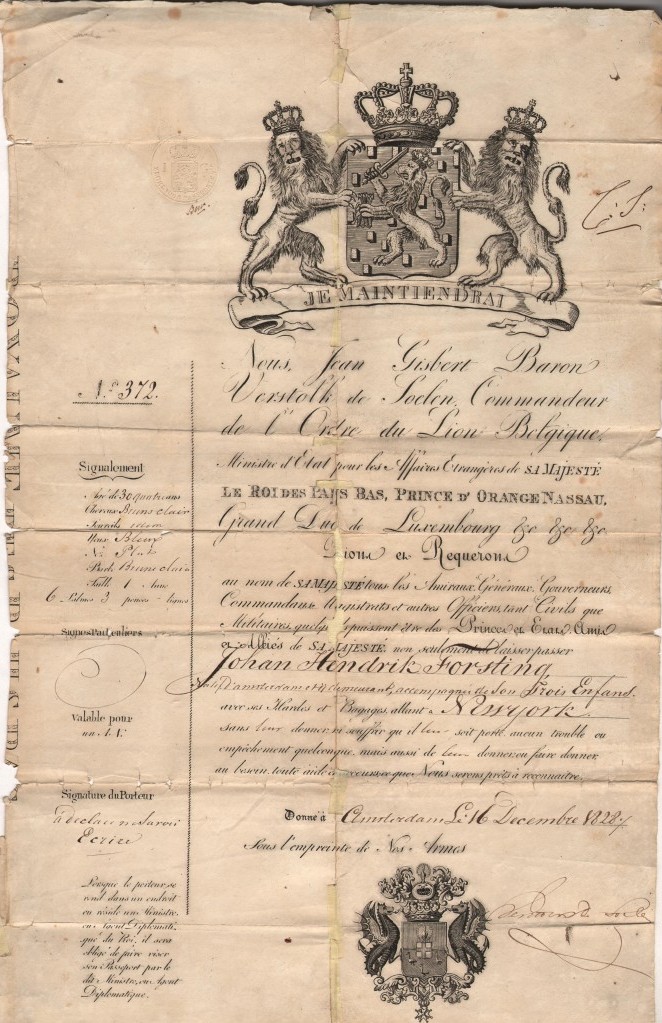 JE MAINTIENDRAI
Nous, Jean Gisbert Baron
Verstolk de Soelen, Commandeur
de l'Ordre du Lion Belgique,
Ministre d'Etat pour les Affaires Etrangères de SA MAJESTÉ
LE ROI DES PAYS BAS, PRINCE D'ORANGE NASSAU,
Grand Duc de Luxembourg &c &c &c
Prions et Requerons
au nom de SA MAJESTÉ tous les Amiraux, Généraux, Gouverneurs,
Commandans Magistrats et autres Officiers, tant Civils que
Militaires, puissent être des Princes et Etats Amis
et Alliés de SA MAJESTÉ, non seulement de laisser passer
Johan Hendrik Forsting
Natif d'amsterdam et y demeurant, accompagné de Son Trois Enfand.
avec ses Hardes et Bagages, allant à Newyork
sans leur donner, ni souffrir qu'il leur soit porté aucun trouble ou
empêchement quelconque, mais aussi de leur donner, ou faire donner,
au besoin, toute aide et que Nous serons prêts à reconnaitre.
Donné à Amsterdam Le 16 Decembre 1828
Sous l'empreinte de Nos Armes
N.o 372.
Signalement
Agé de 30 ans
Cheveux Bruns clair
Sourcils idem
Yeux Bleux
Nez Plat
Barbe Brune clair
Taille 1 Aune
6 Palmes 3 pouces - lignes
Signes Particuliers
Valable pour
un AN.
Signature du Porteur
à declaré ne Savoir
Ecrire
Lorsque le porteur se
rend dans un endroit
ou réside un Ministre
ou Agent Diplomati-
que du Roi, il sera
obligé de faire viser
son Passeport par le
dit Ministre, ou Agent
Diplomatique.